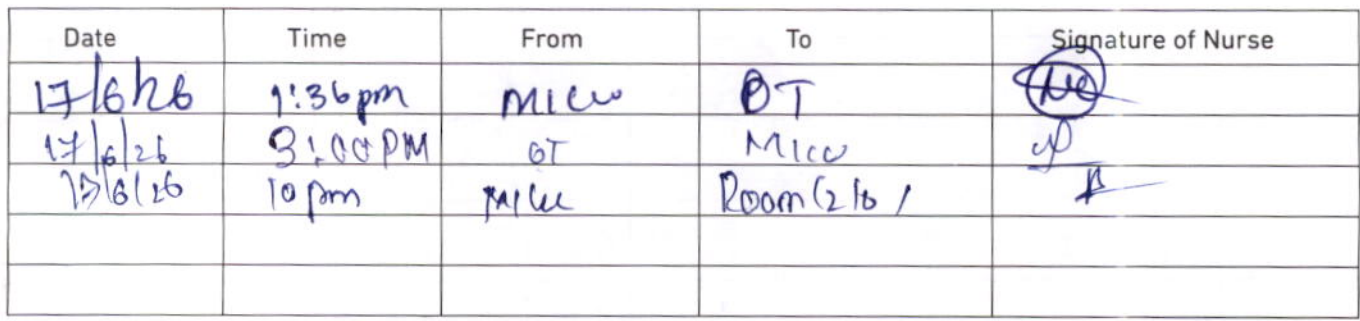 Date Time From To Signature of Nurse
17/6/26 1:36pm MICU OT
17/6/26 3:00PM OT MICU
10pm MICU Room